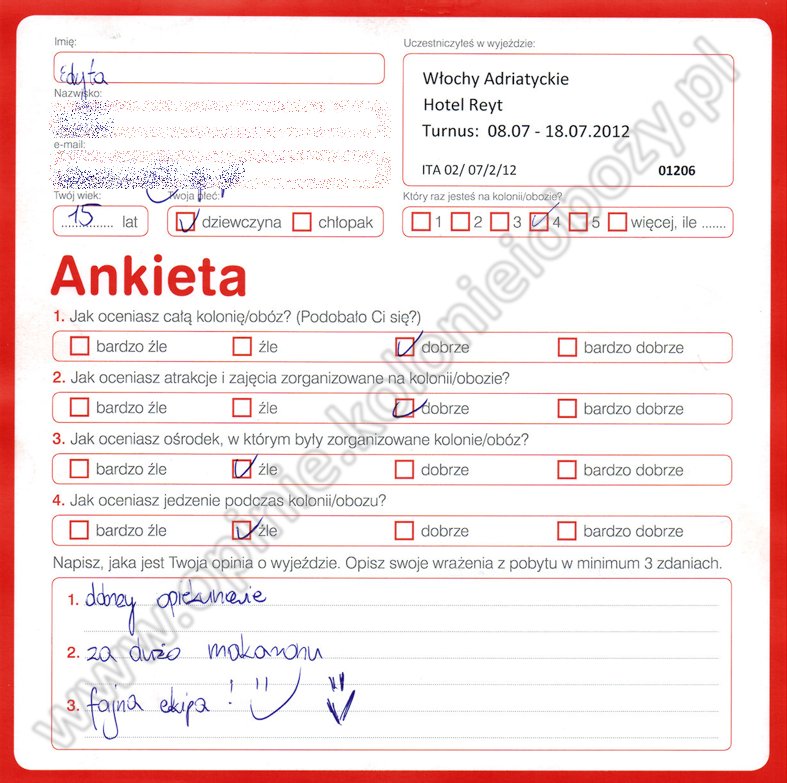 Imię:
Edyta
Nazwisko:
e-mail:
Twój wiek:
15 lat
Twoja płeć:
dziewczyna chłopak
Uczestniczyłeś w wyjeździe:
Włochy Adriatyckie
Hotel Reyt
Turnus: 08.07 - 18.07.2012
ITA 02/ 07/2/12 01206
Który raz jesteś na kolonii/obozie?
1 2 3 4 5 więcej, ile .......
Ankieta
1. Jak oceniasz całą kolonię/obóz? (Podobało Ci się?)
bardzo źle źle dobrze bardzo dobrze
2. Jak oceniasz atrakcje i zajęcia zorganizowane na kolonii/obozie?
bardzo źle źle dobrze bardzo dobrze
3. Jak oceniasz ośrodek, w którym były zorganizowane kolonie/obóz?
bardzo źle źle dobrze bardzo dobrze
4. Jak oceniasz jedzenie podczas kolonii/obozu?
bardzo źle źle dobrze bardzo dobrze
Napisz, jaka jest Twoja opinia o wyjeździe. Opisz swoje wrażenia z pobytu w minimum 3 zdaniach.
1. dobrzy opiekunowie
2. za dużo makaronu
3. fajna ekipa !
www.opinie.kolonieiobozy.pl